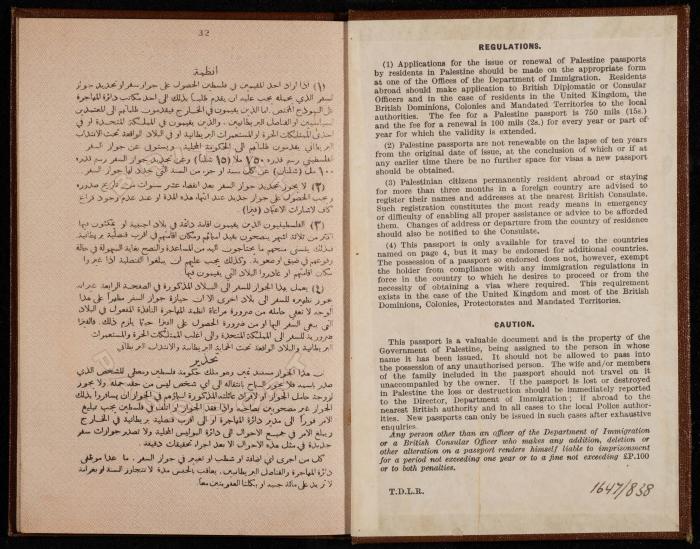 32
أنظمة
(١) اذا اراد احد المقيمين في فلسطين الحصول على جواز سفر او تجديد جواز
السفر الذي يحمله يجب عليه ان يقدم طلباً بذلك الى احد مكاتب دائرة المهاجرة
على النموذج المختص. اما الذين يقيمون في الخارج فيقدمون طلباتهم الى المعتمدين
السياسيين او القناصل البريطانيين. والذين يقيمون في المملكة المتحدة او في
احدى الممتلكات الحرة او المستعمرات البريطانية او في البلاد الواقعة تحت الانتداب
البريطاني يقدمون طلباتهم الى الحكومة المحلية. ويستوفى عن جواز السفر
الفلسطيني رسم قدره ٧٥٠ ملا (١٥ شلناً) وعن تجديد جواز السفر رسم قدره
١٠٠ مل (شلنان) عن كل سنة او جزء من السنة التي يجدد لها جواز السفر
(٢) لا يجوز تجديد جواز السفر بعد انقضاء عشر سنوات من تاريخ صدوره
ويجب الحصول على جواز جديد عند انتهاء هذه المدة او عند عدم وجود فراغ
كاف لاشارات الاعتماد (فيزا)
(٣) الفلسطينيون الذين يقيمون اقامة دائمة في بلاد اجنبية او يمكثون فيها
اكثر من ثلاثة اشهر ينصحون بقيد اسمائهم ومكان اقامتهم في اقرب قنصلية بريطانية
فبذلك يتسنى منحهم ما يحتاجون اليه من المساعدة والنصح بغاية السهولة في حالة
وقوعهم في ضيق او صعوبة. وكذلك يجب عليهم ان يبلغوا القنصلية اذا غيروا
مكان اقامتهم او غادروا البلاد التي يقيمون فيها
(٤) يعمل بهذا الجواز للسفر الى البلاد المذكورة في الصفحة الرابعة غير انه
يجوز تظهيره للسفر الى بلاد اخرى الا ان حيازة جواز السفر مظهراً على هذا
الوجه لا تعفي حامله من ضرورة مراعاة انظمة المهاجرة النافذة المفعول في البلاد
التي يبغي السفر اليها او من ضرورة الحصول على الفيزا حيثما يلزم ذلك. والفيزا
ضرورية للسفر الى المملكة المتحدة والى اغلب الممتلكات الحرة والمستعمرات
البريطانية والبلاد الواقعة تحت الحماية البريطانية والانتداب البريطاني
تحذير
ان هذا الجواز مستند ثمين وهو ملك حكومة فلسطين ومعطى للشخص الذي
صدر باسمه فلا يجوز السماح بانتقاله الى اي شخص ليس من حقه حمله. ولا يجوز
لزوجة حامل الجواز او لافراد عائلته المذكورة اسماؤهم في الجواز ان يسافروا بذلك
الجواز غير مصحوبين بصاحبه واذا فقد الجواز او اتلف في فلسطين يجب تبليغ
الامر فوراً الى مدير دائرة المهاجرة او الى اقرب قنصلية بريطانية في الخارج
ويبلغ الامر في جميع الاحوال الى دائرة البوليس المحلية ولا تصدر جوازات سفر
جديدة في مثل هذه الاحوال الا بعد اجراء تحقيقات دقيقة.
كل من اجرى اي اضافة او شطب او تغيير في جواز السفر، ما عدا موظفي
دائرة المهاجرة والقناصل البريطانيين، يعاقب بالحبس مدة لا تتجاوز السنة او بغرامة
لا تزيد على مائة جنيه او بكلتا العقوبتين معاً.
REGULATIONS.
(1) Applications for the issue or renewal of Palestine passports
by residents in Palestine should be made on the appropriate form
at one of the Offices of the Department of Immigration. Residents
abroad should make application to British Diplomatic or Consular
Officers and in the case of residents in the United Kingdom, the
British Dominions, Colonies and Mandated Territories to the local
authorities. The fee for a Palestine passport is 750 mils (15s.)
and the fee for a renewal is 100 mils (2s.) for every year or part of
year for which the validity is extended.
(2) Palestine passports are not renewable on the lapse of ten years
from the original date of issue, at the conclusion of which or if at
any earlier time there be no further space for visas a new passport
should be obtained.
(3) Palestinian citizens permanently resident abroad or staying
for more than three months in a foreign country are advised to
register their names and addresses at the nearest British Consulate.
Such registration constitutes the most ready means in emergency
or difficulty of enabling all proper assistance or advice to be afforded
them. Changes of address or departure from the country of residence
should also be notified to the Consulate.
(4) This passport is only available for travel to the countries
named on page 4, but it may be endorsed for additional countries.
The possession of a passport so endorsed does not, however, exempt
the holder from compliance with any immigration regulations in
force in the country to which he desires to proceed or from the
necessity of obtaining a visa where required. This requirement
exists in the case of the United Kingdom and most of the British
Dominions, Colonies, Protectorates and Mandated Territories.
CAUTION.
This passport is a valuable document and is the property of the
Government of Palestine, being assigned to the person in whose
name it has been issued. It should not be allowed to pass into
the possession of any unauthorised person. The wife and/or members
of the family included in the passport should not travel on it
unaccompanied by the owner. If the passport is lost or destroyed
in Palestine the loss or destruction should be immediately reported
to the Director, Department of Immigration; if abroad to the
nearest British Authority and in all cases to the local Police Author-
ities. New passports can only be issued in such cases after exhaustive
enquiries.
Any person other than an officer of the Department of Immigration
or a British Consular Officer who makes any addition, deletion or
other alteration on a passport renders himself liable to imprisonment
for a period not exceeding one year or to a fine not exceeding £P.100
or to both penalties.
T.D.L.R.
1647/838